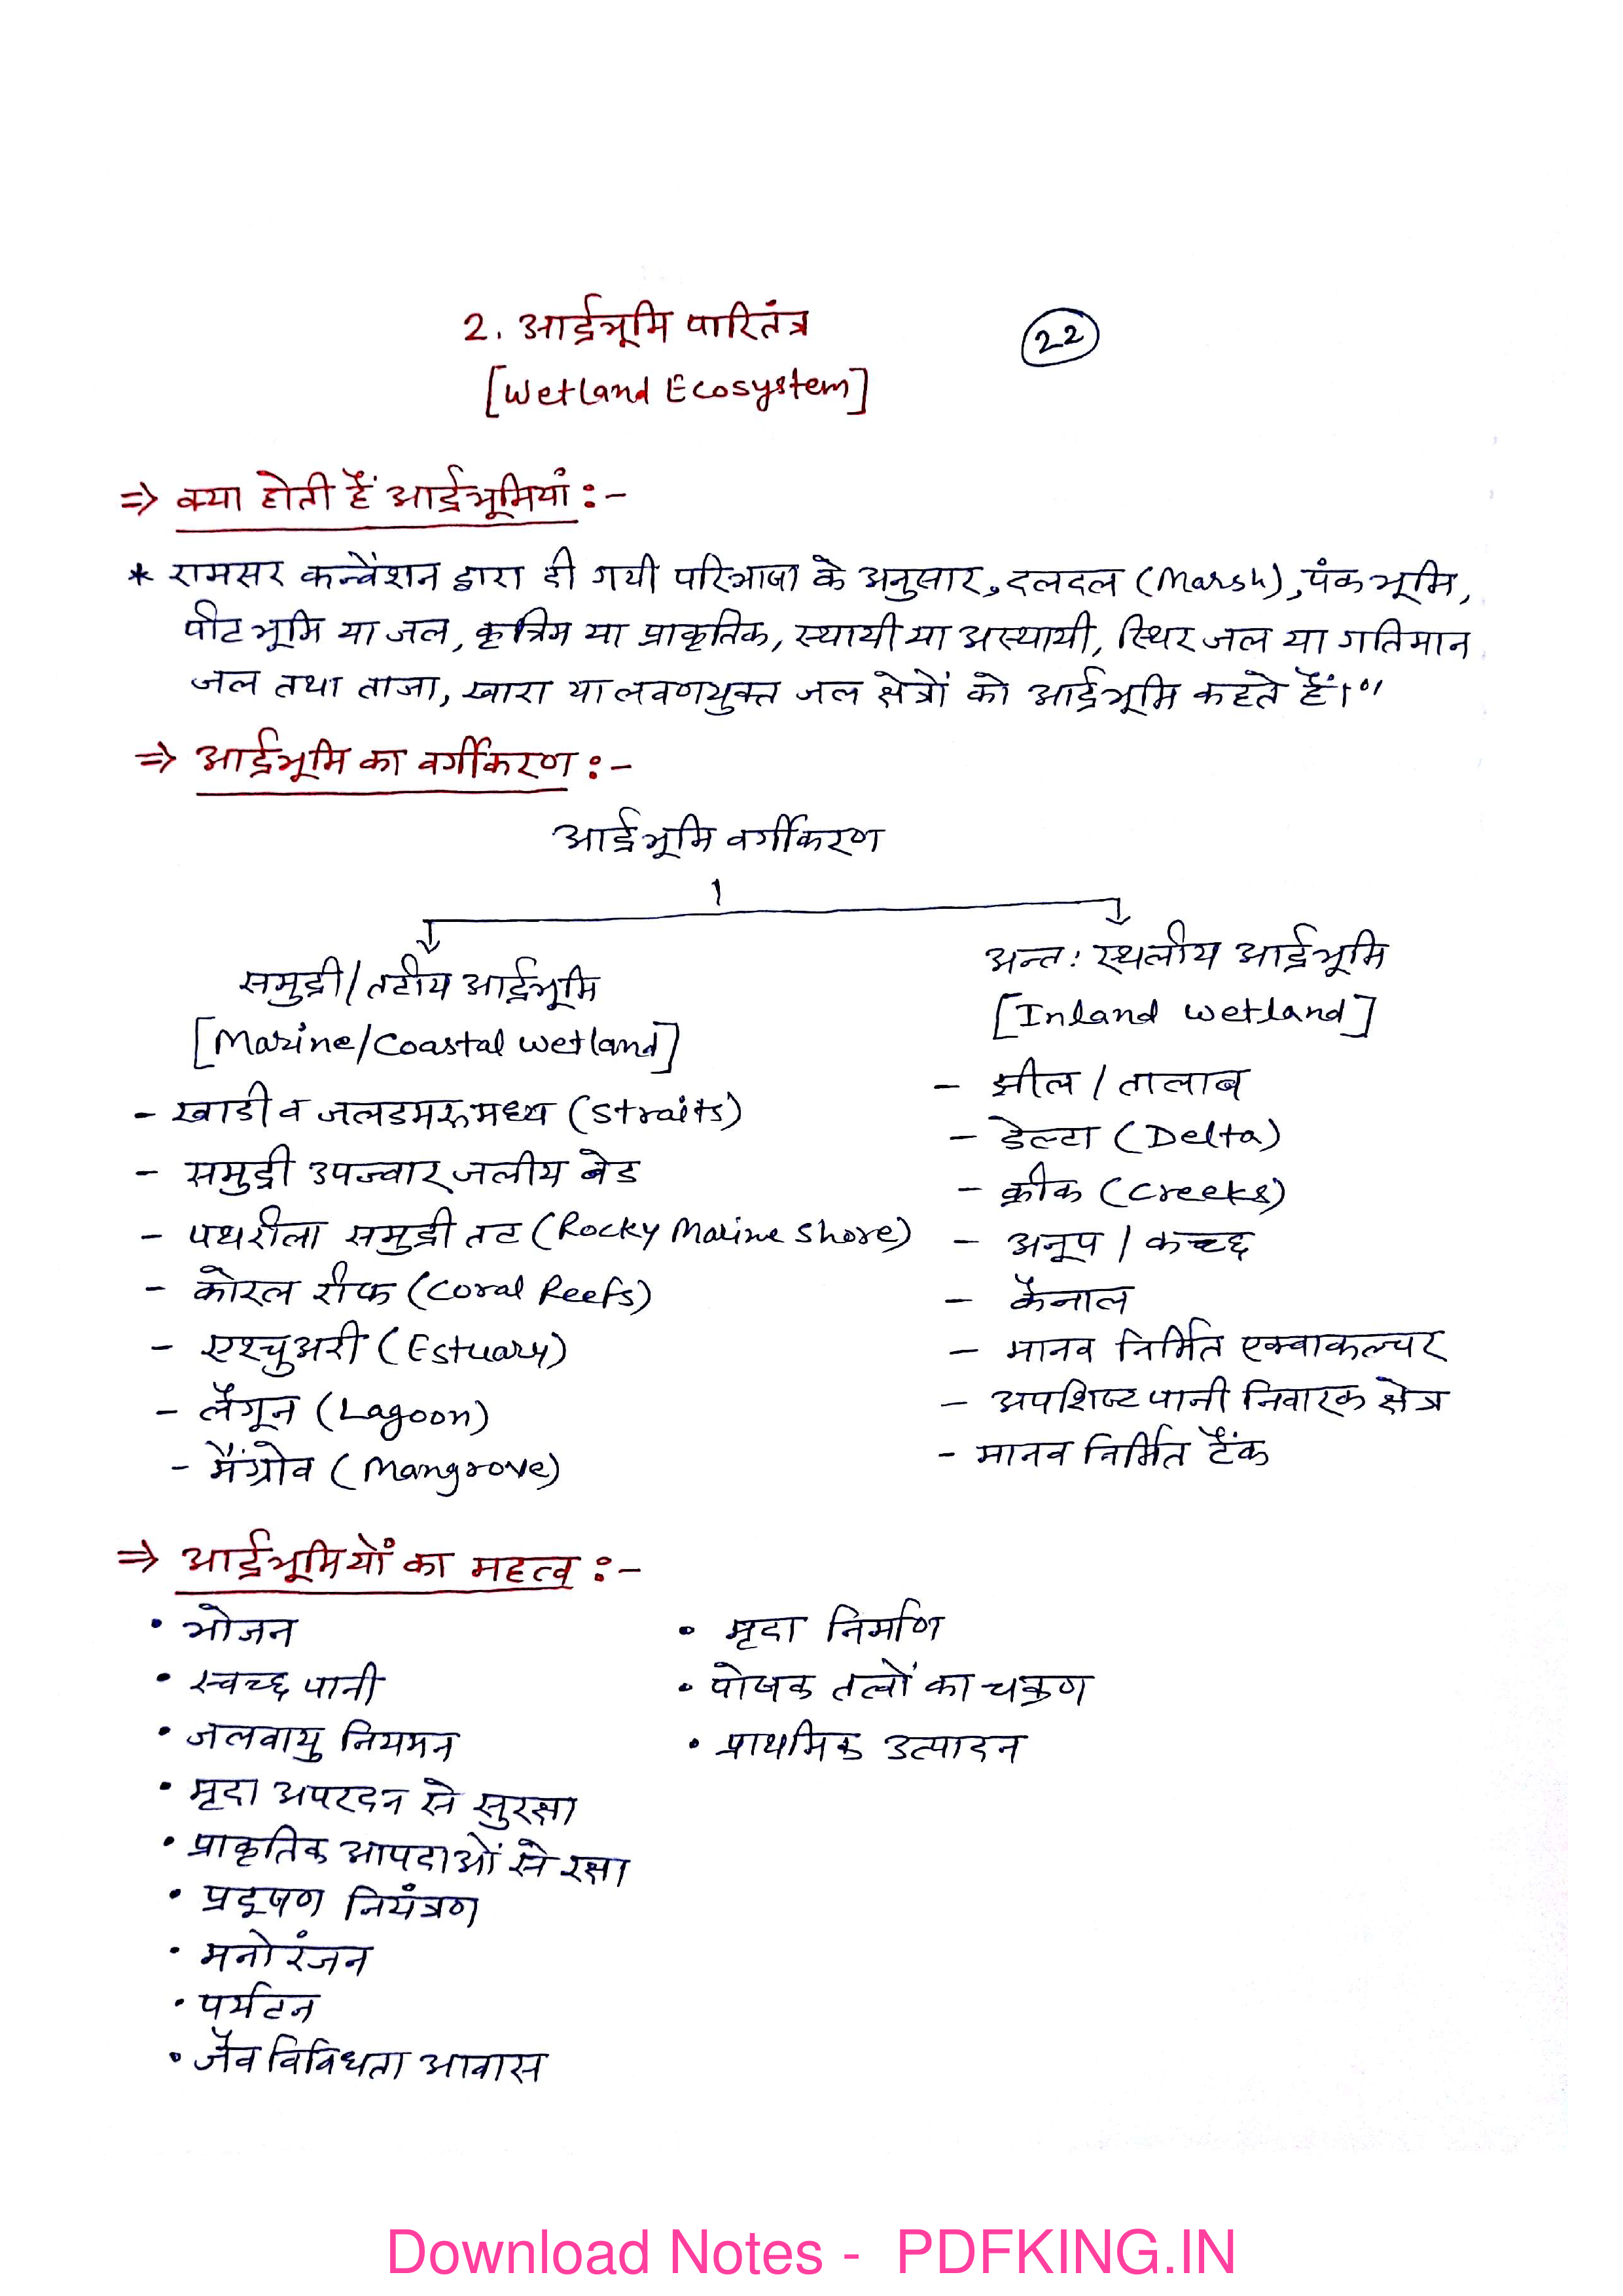 2. आर्द्रभूमि पारितंत्र
22
[Wetland Ecosystem]
⇒ क्या होती हैं आर्द्रभूमियां :-
* रामसर कन्वेंशन द्वारा दी गयी परिभाषा के अनुसार, दलदल (Marsh), पंकभूमि,
पीटभूमि या जल, कृत्रिम या प्राकृतिक, स्थायी या अस्थायी, स्थिर जल या गतिमान
जल तथा ताजा, खारा या लवणयुक्त जल क्षेत्रों को आर्द्रभूमि कहते हैं।"
⇒ आर्द्रभूमि का वर्गीकरण :-
आर्द्रभूमि वर्गीकरण
समुद्री/तटीय आर्द्रभूमि
[Marine/Coastal Wetland]
- खाडी व जलडमरूमध्य (Straits)
- समुद्री उपज्वार जलीय बेड
- पथरीला समुद्री तट (Rocky Marine Shore)
- कोरल रीफ (Coral Reefs)
- एश्चुअरी (Estuary)
- लैगून (Lagoon)
- मैंग्रोव (Mangrove)
अन्तः स्थलीय आर्द्रभूमि
[Inland Wetland]
- झील / तालाब
- डेल्टा (Delta)
- क्रीक (Creeks)
- अनूप / कच्छ
- कैनाल
- मानव निर्मित एक्वाकल्चर
- अपशिष्ट पानी निवारक क्षेत्र
- मानव निर्मित टैंक
⇒ आर्द्रभूमियों का महत्व :-
• भोजन
• स्वच्छ पानी
• जलवायु नियमन
• मृदा अपरदन से सुरक्षा
• प्राकृतिक आपदाओं से रक्षा
• प्रदूषण नियंत्रण
• मनोरंजन
• पर्यटन
• जैव विविधता आवास
• मृदा निर्माण
• पोषक तत्वों का चक्रण
• प्राथमिक उत्पादन
Download Notes - PDFKING.IN